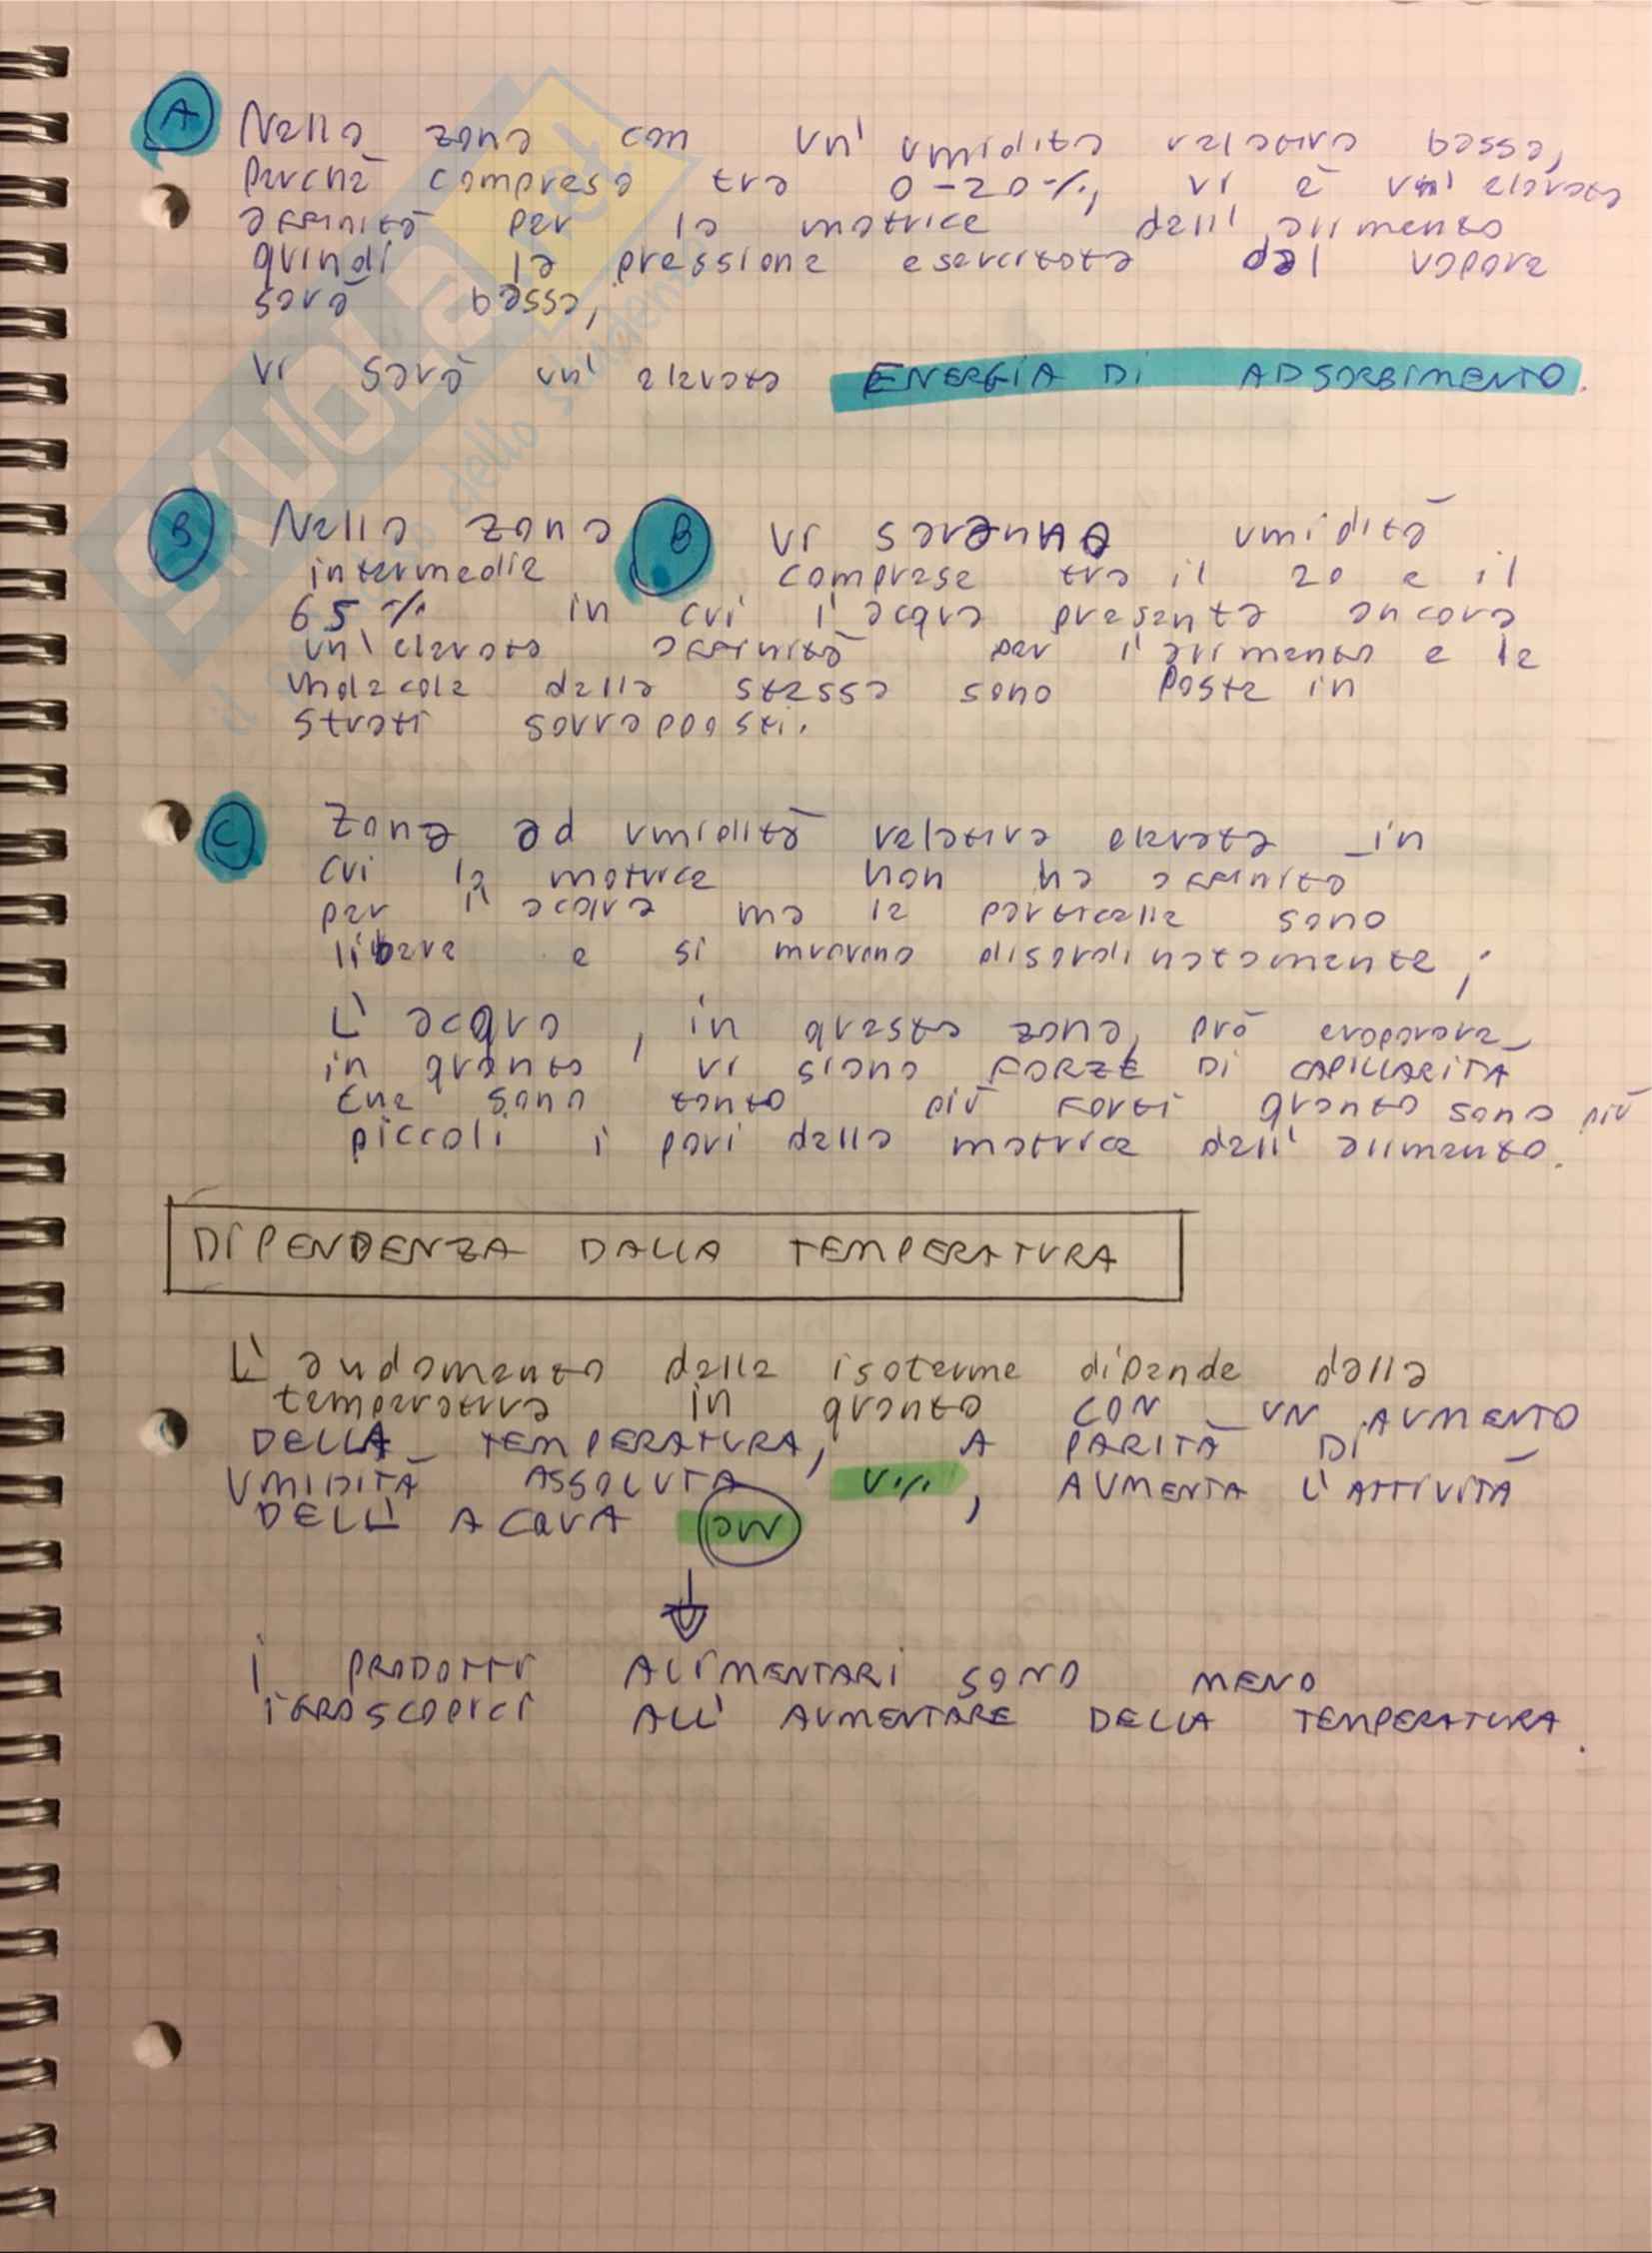 A Nella zona con un' umidità relativa bassa,
perchè compresa tra 0-20%, vi è un' elevata
affinità per la matrice dell' alimento
quindi la pressione esercitata dal vapore
sarà bassa,
vi sarà un' elevata ENERGIA DI ADSORBIMENTO.
B Nella zona B vi saranno umidità
intermedie comprese tra il 20 e il
65% in cui l'acqua presenta ancora
un'elevata affinità per l'alimento e le
molecole della stessa sono poste in
strati sovrapposti.
C Zona ad umidità relativa elevata in
cui la matrice non ha affinità
per l'acqua ma le particelle sono
libere e si muovono disordinatamente;
L'acqua, in questa zona, può evaporare
in quanto vi siano FORZE DI CAPILLARITÀ
che sono tanto più forti quanto sono più
piccoli i pori della matrice dell' alimento.
DIPENDENZA DALLA TEMPERATURA
L'andamento delle isoterme dipende dalla
temperatura in quanto CON UN AUMENTO
DELLA TEMPERATURA, A PARITÀ DI
UMIDITÀ ASSOLUTA U%, AUMENTA L'ATTIVITÀ
DELL'ACQUA aw
I PRODOTTI ALIMENTARI SONO MENO
IGROSCOPICI ALL' AUMENTARE DELLA TEMPERATURA.
SKUOLA.net
il paradiso dello studente